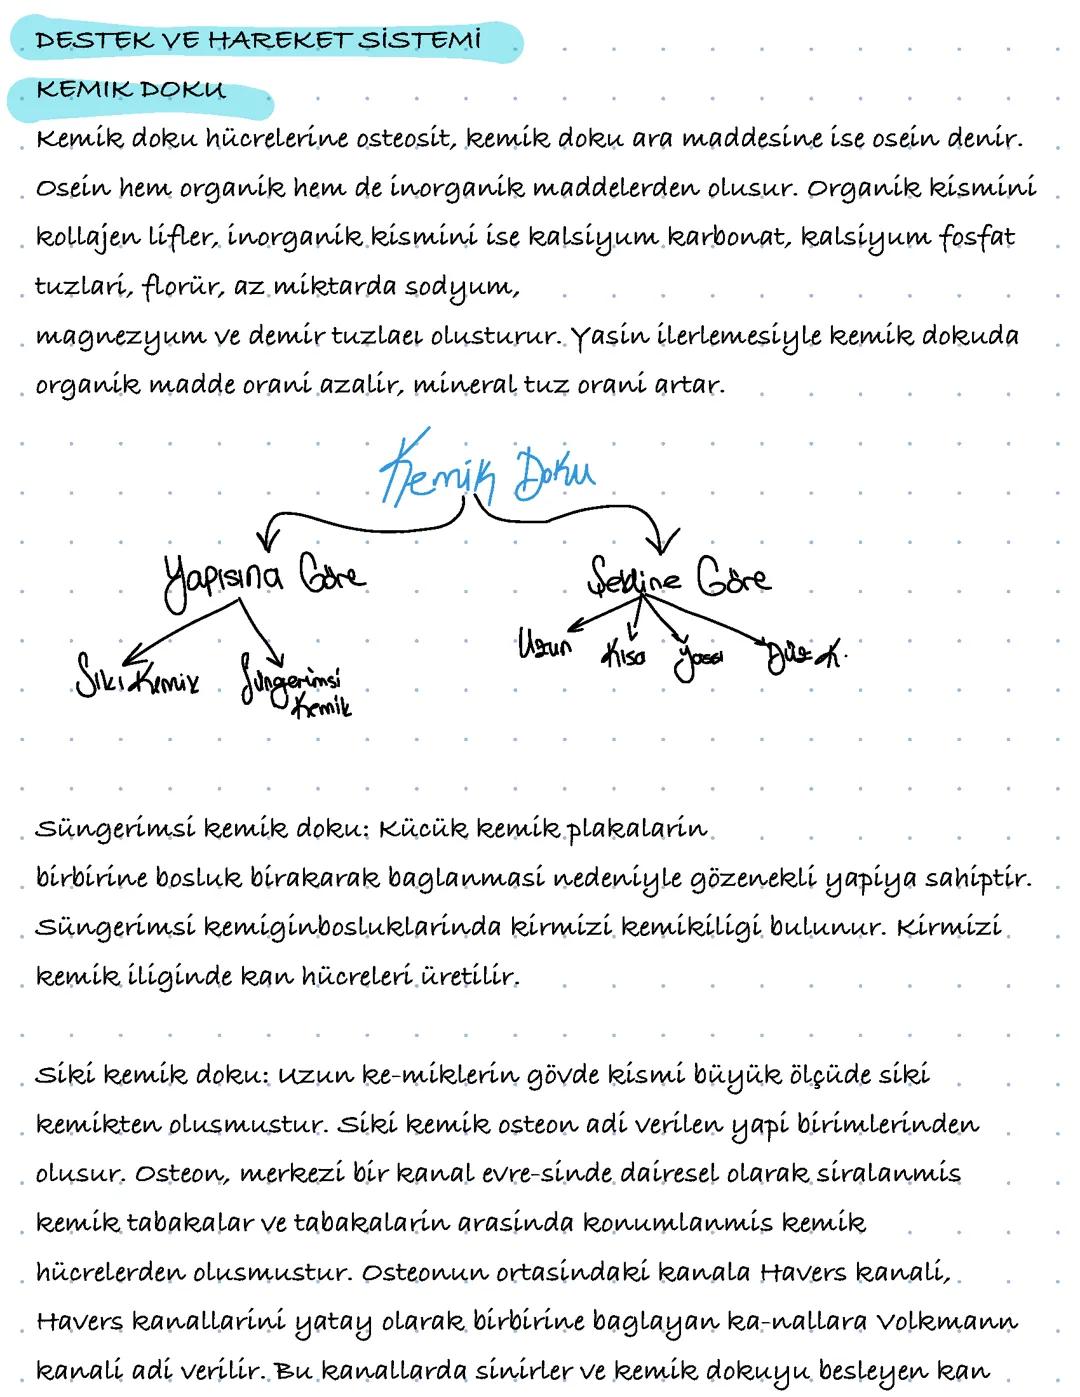 DESTEK VE HAREKET SİSTEMİ
KEMIK DOKU
Kemik doku hücrelerine osteosit, kemik doku ara maddesine ise osein denir.
Osein hem organik hem de inorganik maddelerden olusur. Organik kismini
kollajen lifler, inorganik kismini ise kalsiyum karbonat, kalsiyum fosfat
tuzlari, florür, az miktarda sodyum,
magnezyum ve demir tuzlaeı olusturur. Yasin ilerlemesiyle kemik dokuda
organik madde orani azalir, mineral tuz orani artar.
Kemik Doku
Yapısına Göre Şekline Göre
Uzun Kısa Yassı Düz K.
Sıkı Kemik Süngerimsi
Kemik
Süngerimsi kemik doku: Kücük kemik plakalarin
birbirine bosluk birakarak baglanmasi nedeniyle gözenekli yapiya sahiptir.
Süngerimsi kemiginbosluklarinda kirmizi kemikiligi bulunur. Kirmizi
kemik iliginde kan hücreleri üretilir.
Siki kemik doku: Uzun ke-miklerin gövde kismi büyük ölçüde siki
kemikten olusmustur. Siki kemik osteon adi verilen yapi birimlerinden
olusur. Osteon, merkezi bir kanal evre-sinde dairesel olarak siralanmis
kemik tabakalar ve tabakalarin arasinda konumlanmis kemik
hücrelerden olusmustur. Osteonun ortasindaki kanala Havers kanali,
Havers kanallarini yatay olarak birbirine baglayan ka-nallara Volkmann
kanali adi verilir. Bu kanallarda sinirler ve kemik dokuyu besleyen kan